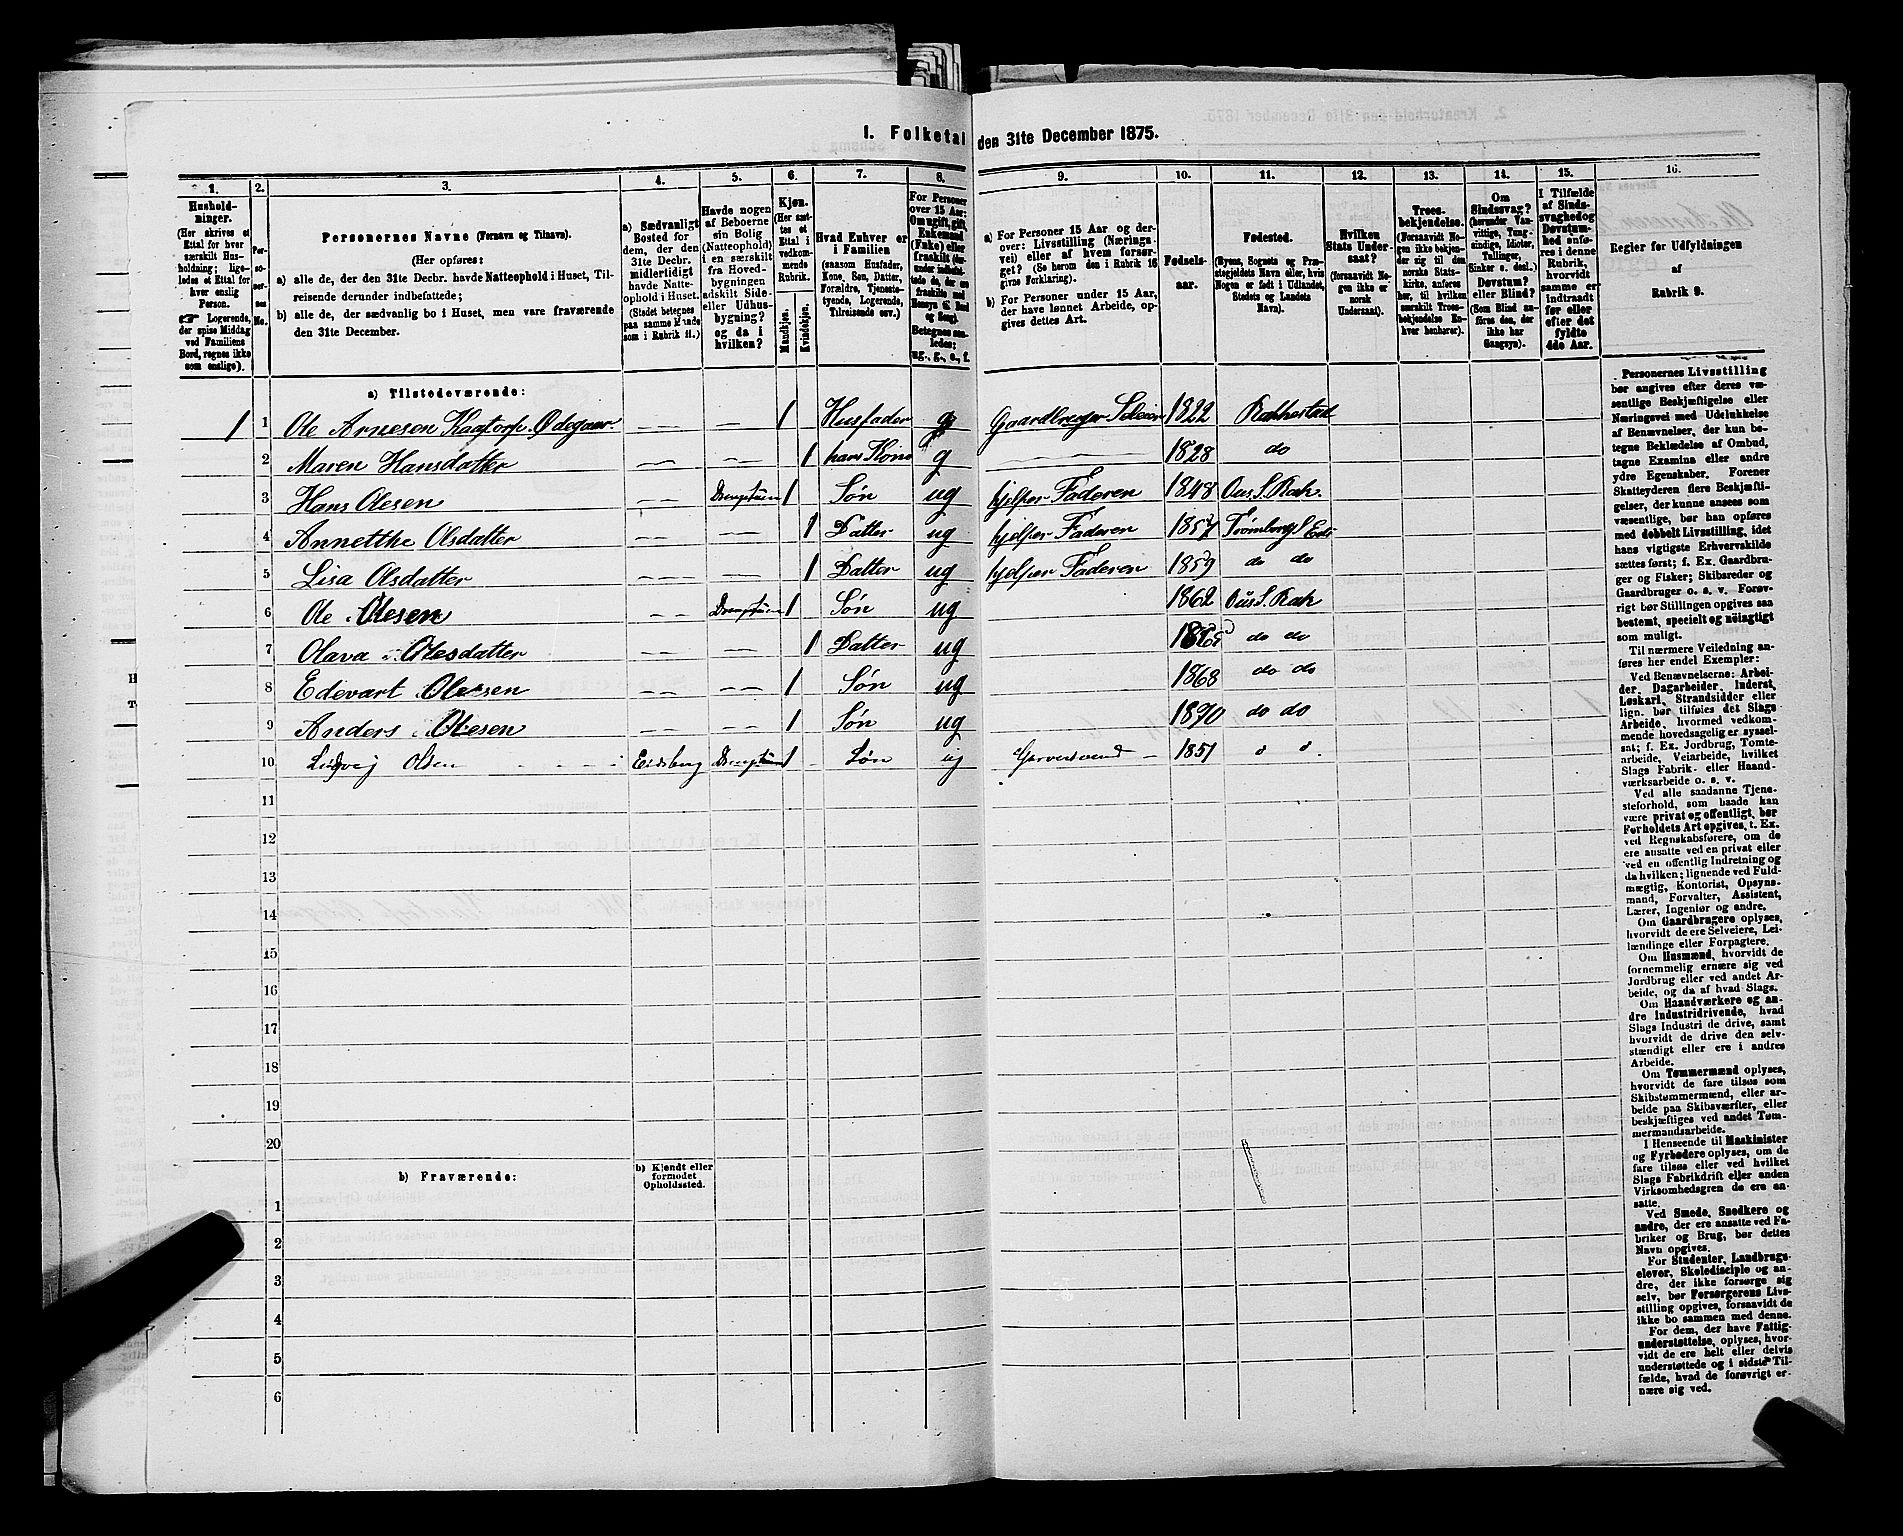 1. Folketal den 31te December 1875.
1.
Hushold-
ninger.
(Her skrives et
Ettal for hver
særskilt Hus-
holdning; lige-
ledes et Ettal for
hver enslig
Person.
☛ Logerende,
der spise Middag
ved Familiens
Bord, regnes ikke
som enslige).
2.
Per-
so-
ner-
nes
No.
3.
Personernes Navne (Fornavn og Tilnavn).
(Her opføres:
a) alle de, der den 31te Decbr. havde Natteophold i Huset, Til-
reisende derunder indbefattede;
b) alle de, der sædvanlig bo i Huset, men vare fraværende
den 31te December.
4.
a) Sædvanligt
Bosted for
dem, der den
31te Decbr.
midlertidigt
havde Natte-
ophold i Huset.
(Stedet betegnes
paa samme Maade
som i Rubrik 11.)
5.
Havde nogen
af Beboerne
sin Bolig
(Natteophold)
i en særskilt
fra Hoved-
bygningen
adskilt Side-
eller Udhus-
bygning?
og da i
hvilken?
6.
Kjøn.
(Her sæt-
tes et
Ettal i
vedkom-
mende
Rubrik.
Mandkjøn.
Kvindekjøn.
7.
Hvad Enhver er
i Familien
(saasom Husfader,
Kone, Søn, Datter,
Forældre, Tjeneste-
tyende, Logerende,
Tilreisende osv.)
8.
For Personer
over 15 Aar:
Om ugift, gift,
Enkemand
(Enke) eller
fraskilt (der-
under indbefat-
tede de, der ere
fraskilte med
Hensyn til Bord
og Seng).
Betegnes saa-
ledes:
ug., g., e., f.
9.
a) For Personer 15 Aar og der-
over: Livsstilling (Nærings-
vei) eller af hvem forsør-
get? (Se herom den i Rubrik 16
givne Forklaring).
b) For Personer under 15 Aar,
der have lønnet Arbeide, op-
gives dettes Art.
10.
Fødsels-
aar.
11.
Fødested.
(Byens, Sognets og Præ-
stegjeldets Navn eller, hvis
Nogen er født i Udlandet,
Stedets og Landets
Navn).
12.
Hvilken
Stats Under-
saat?
(forsaavidt No-
gen ikke er
norsk
Undersaat).
13.
Troes-
bekjendelse.
(Forsaavidt No-
gen ikke bekjen-
der sig til den
norske Stats-
kirke, anføres
her, til hvilken
særskilt Troes-
bekjendelse En-
hver henhører).
14.
Om
Sindssvag?
(herunder Van-
vittige, Tung-
sindige, Idioter,
Tullinger,
Sinker o. desl.)
Døvstum?
eller Blind?
(Som Blind an-
føres den, der
ikke har
Gangsyn).
15.
I Tilfælde
af Sinds-
svaghed og
Døvstum-
hed anfø-
res i denne
Rubrik,
hvorvidt
samme er
indtraadt
før eller
efter det
fyldte
4de Aar.
16.
Regler for Udfyldningen
af
Rubrik 9.
a) Tilstedeværende:
1 1 Ole Arnesen Kaatorp Ødegaar 1 Husfader g Gaardbruger Seleier 1822 Rakkestad
2 Maren Hansdatter 1 hans Kone g 1828 do
3 Hans Olesen 1 Søn ug hjelper Faderen 1848 Ous S. Rak.
4 Annetthe Olsdatter 1 Datter ug hjelper Faderen 1857 Trømborg S Eds
5 Lisa Olsdatter 1 Datter ug hjelper Faderen 1859 do do
6 Ole Olesen 1 Søn ug 1862 Ous S. Rak
7 Olava Olesdatter 1 Datter ug 1865 do do
8 Edevart Olesen 1 Søn ug 1868 do do
9 Anders Olesen 1 Søn ug 1870 do do
10 Ludvig Olsen Eidsberg 1 Søn ug Garversvend 1851
11
12
13
14
15
16
17
18
19
20
b) Fraværende:
b) Kjendt eller
formodet
Opholdssted.
1
2
3
4
5
6
Personernes Livsstilling
bør angives efter deres væ-
sentlige Beskjæftigelse eller
Næringsvei med Udelukkelse
af Benævnelser, der kun be-
tegne Beklædelse af Ombud,
tagne Examina eller andre
ydre Egenskaber. Forener
Skatteyderen flere Beskjæfti-
gelser, der kunne ansees som
væsentlige, bør han opføres
med dobbelt Livsstilling, idet
hans vigtigste Erhvervskilde
sættes først; f. Ex. Gaardbru-
ger og Fisker; Skibsreder og
Gaardbruger o. s. v. Forøv-
rigt bør Stillingen opgives saa
bestemt, specielt og nøiagtigt
som muligt.
Til nærmere Veiledning an-
føres her endel Exempler:
Ved Benævnelserne: Arbei-
der, Dagarbeider, Inderst,
Løskarl, Strandsidder eller
lign. bør tilføies det Slags
Arbeide, hvormed vedkom-
mende hovedsagelig er syssel-
sat; f. Ex. Jordbrug, Tomte-
arbeide, Veiarbeide, hvilket
Slags Fabrik- eller Haand-
værksarbeide o. s. v.
Ved alle saadanne Tjene-
steforhold, som baade kan
være privat og offentligt, bør
Forholdets Art opgives, t. Ex.
ved Regnskabsførere, om de
ere ansatte ved en privat eller
ved en offentlig Indretning og
da hvilken; lignende ved Fuld-
mægtig, Kontorist, Opsyns-
mand, Forvalter, Assistent,
Lærer, Ingeniør og andre.
Om Gaardbrugere oplyses,
hvorvidt de ere Selveiere, Lei-
lændinge eller Forpagtere.
Om Husmænd, hvorvidt de
fornemmelig ernære sig ved
Jordbrug eller ved andet Ar-
beide, og da af hvad Slags.
Om Haandværkere og an-
dre Industridrivende, hvad
Slags Industri de drive, samt
hvorvidt de drive den selv-
stændigt eller ere i andres
Arbeide.
Om Tømmermænd oplyses,
hvorvidt de fare tilsøs som
Skibstømmermænd, eller ar-
beide paa Skibsværfter, eller
beskjæftiges ved andet Tøm-
mermandsarbeide.
I Henseende til Maskinister
og Fyrbødere oplyses, om de
fare tilsøs eller ved hvilket
Slags Fabrikdrift eller anden
Virksomhedsgren de ere an-
satte.
Ved Smede, Snedkere og
andre, der ere ansatte ved Fa-
briker og Brug, bør dettes
Navn opgives.
For Studenter, Landbrugs-
elever, Skoledisciple og an-
dre, der ikke forsørge sig
selv, bør Forsørgerens Livs-
stilling opgives, forsaavidt de
ikke bo sammen med denne.
For dem, der have Fattig-
understøttelse, oplyses, hvor-
vidt de ere helt eller delvis
understøttede og i sidste Til-
fælde, hvad de forøvrigt er-
nære sig ved.